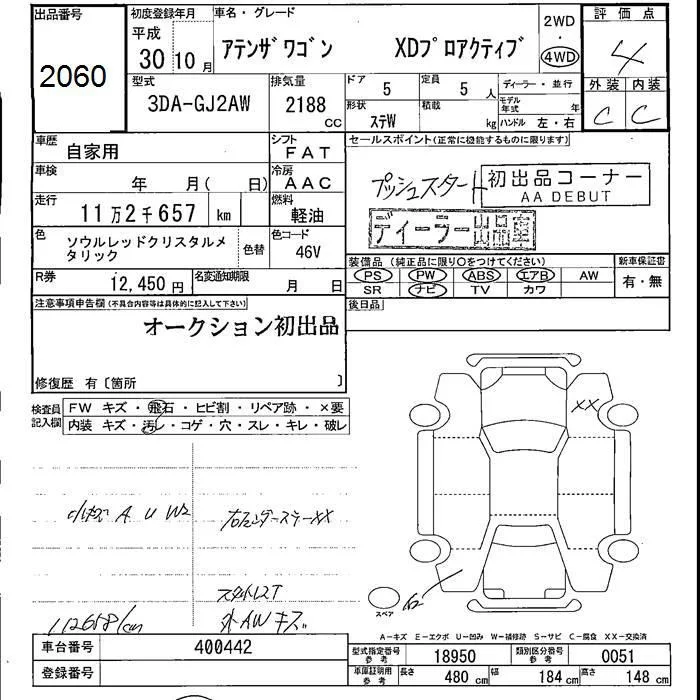 出品番号
2060
初度登録年月
平成
30 10月
車名・グレード
アテンザワゴン XDプロアクティブ
2WD
・
4WD
評価点
4
外装 内装
C C
型式
3DA-GJ2AW
排気量
2188
CC
ドア 5
定員 5人
ディーラー・並行
モデル年式 年
形状 ステW
積載 kg
ハンドル 左・右
車歴
自家用
シフト
FAT
車検
年 月( 日)
冷房
AAC
走行
11万2千657 km
燃料
軽油
色
ソウルレッドクリスタルメタリック
色替
色コード
46V
R券
12,450円
名変通知期限
月 日
セールスポイント(正常に機能するものに限ります)
プッシュスタート
初出品コーナー
AA DEBUT
ディーラー出品車
装備品(純正品に限り○をつけてください)
PS PW ABS エアB AW
SR ナビ TV カワ
新車保証書
有・無
後日品
注意事項申告欄(不具合内容等は具体的に記入して下さい)
オークション初出品
修復歴 有〔箇所 〕
検査員
記入欄
FW キズ・飛石・ヒビ割・リペア跡・×要
内装 キズ・汚レ・コゲ・穴・スレ・キレ・破レ
A U W2
XX
外AWキズ
112658km
XX
スペア
A-キズ E-エクボ U-凹み W-補修跡 S-サビ C-腐食 XX-交換済
車台番号
400442
登録番号
型式指定番号
参考
18950
類別区分番号
参考
0051
車庫証明用
参考
長さ 480 cm
幅 184 cm
高さ 148 cm